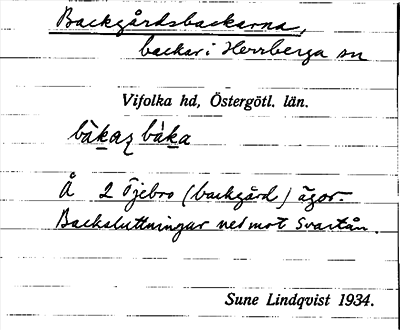 Backgårdsbackarna,
backar i Herrberga sn
Vifolka hd, Östergötl. län.
Å 2 Öjebro (backgård) ägor.
Backsluttningar ned mot Svartån.
Sune Lindqvist 1934.